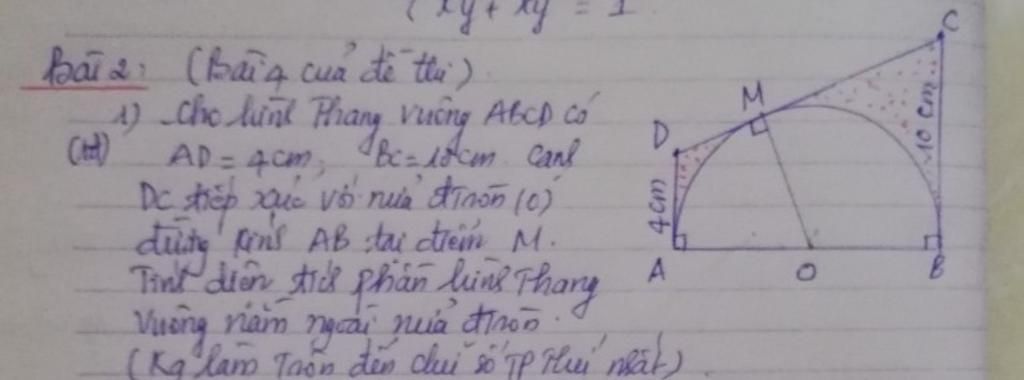 (xy + xy = 1
Bài 2: (Bài 4 của đề thi)
1) Cho hình Thang vuông ABCD có
AD = 4cm; BC = 10cm Cạnh
DC tiếp xúc với nửa đ/tròn (O)
đường kính AB tại điểm M.
Tính diện tích phần hình Thang
Vuông nằm ngoài nửa đ/tròn.
(Kq làm Tròn đến chữ số TP Thứ nhất)
C
M
D
10 cm
4cm
A
O
B